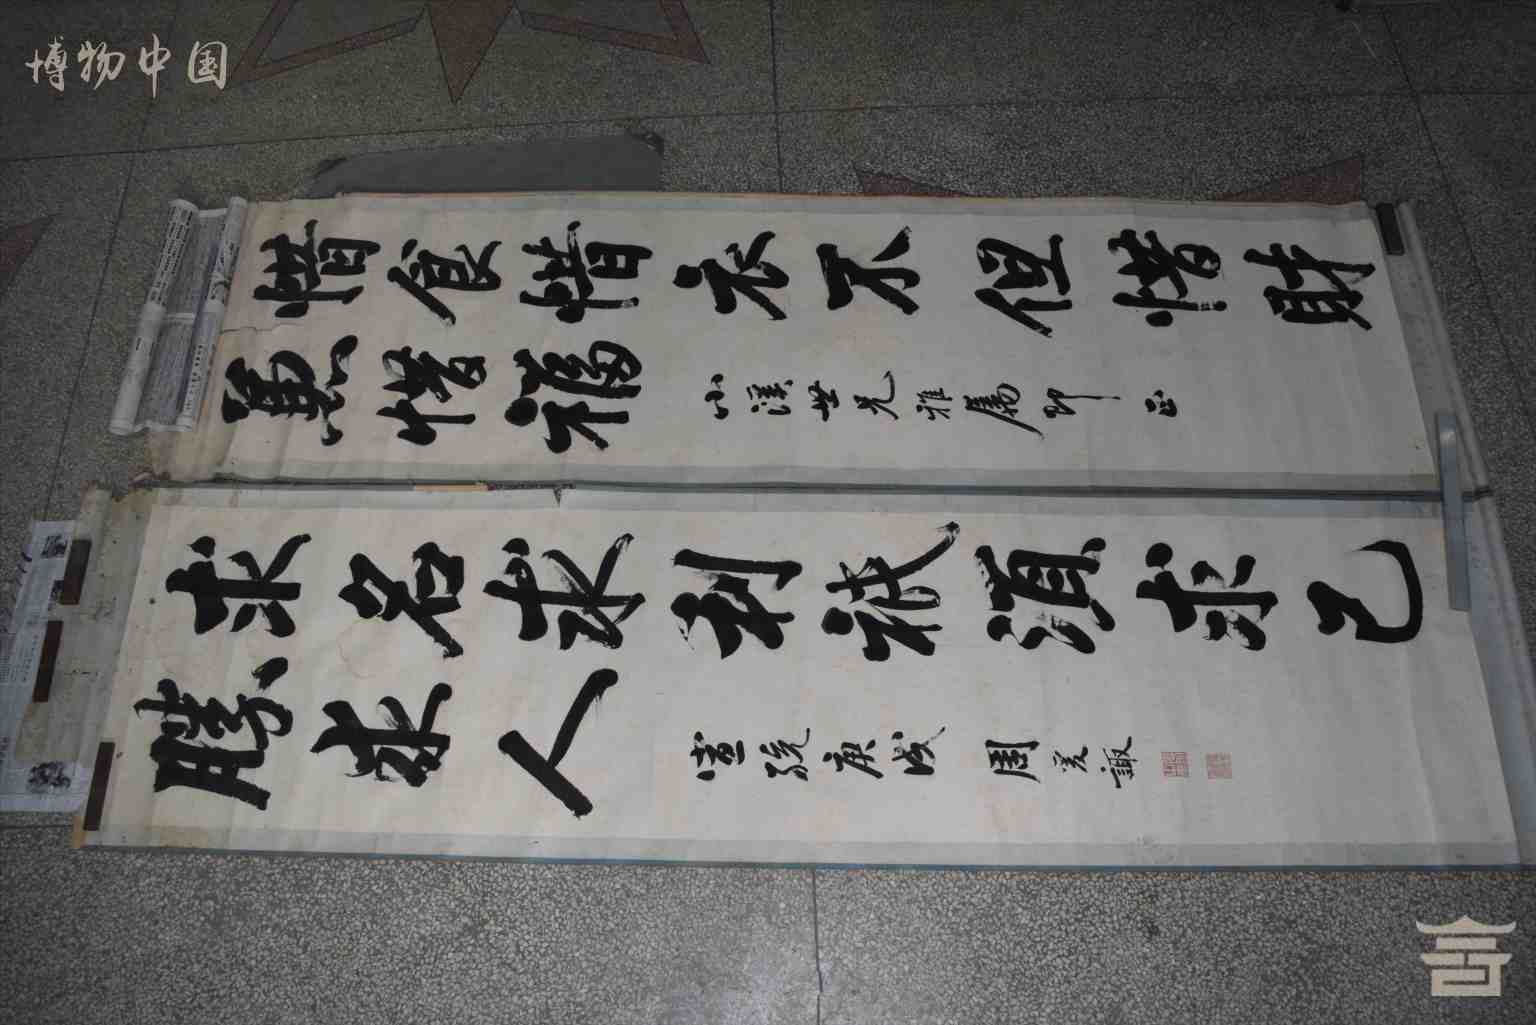 博物中国
惜食惜衣不但惜財
兼惜福
小溪世兄雅屬即正
求名求利祇須求己
勝求人
宣統庚戌 周爰諏